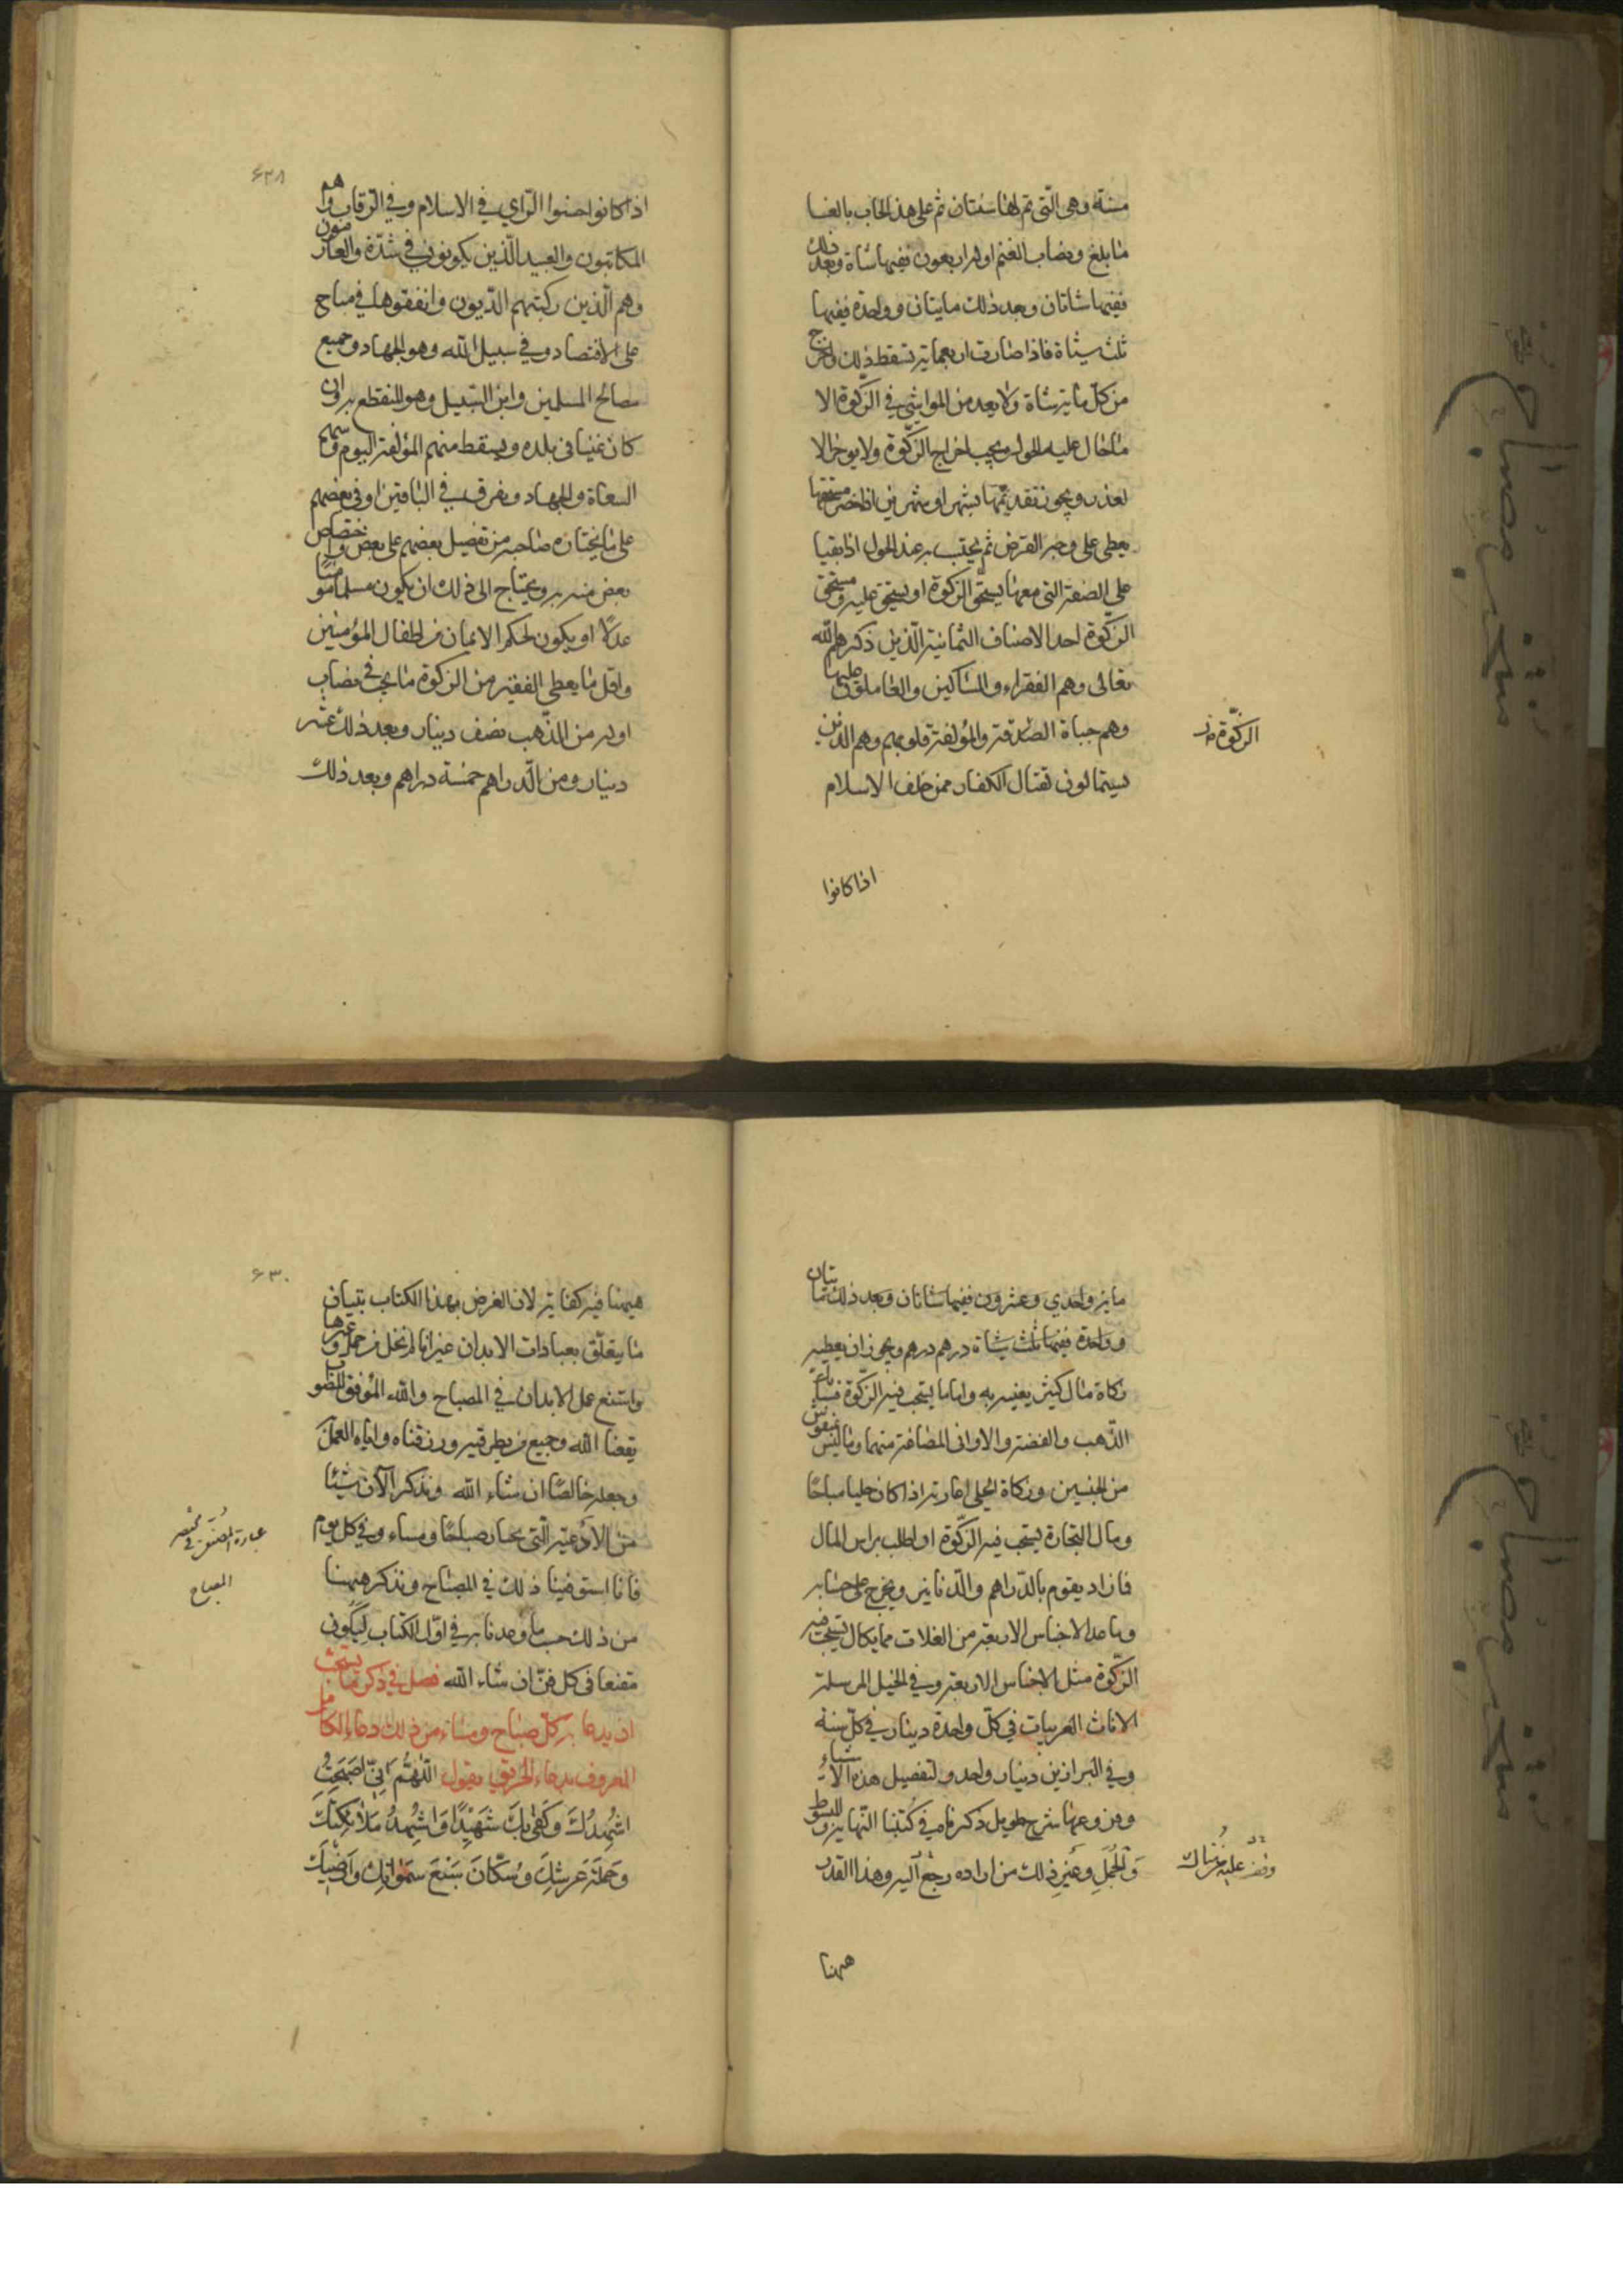 مسنة وهى الّتى تم لها سنتان ثم على هذا الحساب بالغا
ما بلغ ونصاب الغنم اوله اربعون ففيها شاة وبعد ذلك
ففيها شاتان وبعد ذلك مايتان وواحدة ففيها
ثلث شياة فاذا صارت اربعماية تسقط ذلك واخرج
من كل ماية شاة ولا يعد من المواشى في الزكوة الا
ما حال عليه الحول ويجب اخراج الزكوة ولا يوخر الا
لعذر ويجوز تقديمها بشهر او شهرين اذا حضر مستحقها
يعطى على وجه القرض ثم يحتسب به عند الحول اذا بقيا
على الصفة التى معها يستحق الزكوة او يستحق عليه ومستحق
الزكوة احد الاصناف الثمانية الّذين ذكرهم الله
تعالى وهم الفقراء والمساكين والعاملون عليها
وهم جباة الصدقة والمؤلفة قلوبهم وهم الذين
يستمالون لقتال الكفار ممن خلف الاسلام
الزكوة
اذا كانوا
۶۲۸
اذا كانوا حسنوا الرّاي في الاسلام وفي الرّقاب وهم
المكاتبون والعبيد الّذين يكونون في شدّة والغارمون
وهم الّذين ركبتهم الدّيون وانفقوها في مباح
على الاقتصاد وفي سبيل الله وهو الجهاد وجميع
مصالح المسلمين وابن السّبيل وهو المنقطع به وان
كان غنيا فى بلده ويسقط منهم المؤلفة اليوم وسهم
السعاة والجهاد ويفرق في الباقين او فى بعضهم
على ما يختاره صاحبه من تفضيل بعضهم على بعض واختصاص
بعض منه به ويحتاج الى ذلك ان يكون مسلما مومنا
عدلا او يكون بحكم الايمان من اطفال المؤمنين
واقل ما يعطى الفقير من الزكوة ما يجب في نصاب
اوله من الذّهب نصف دينار وبعد ذلك عشر
دينار ومن الدّراهم خمسة دراهم وبعد ذلك
ماية واحدي وعشرون ففيها شاتان وبعد ذلك مايتان
وواحدة ففيها ثلث شياة درهم درهم ويجوز ان يعطيه
زكاة مال كثير يغنيه به واما ما يستحب فيه الزكوة فسبايك
الذّهب والفضة والاوانى المصاغة منهما وما ليس بمنقوش
من الجنسين وزكاة الحلى اعارته اذا كان حليا مباحًا
ومال التجارة يستحب فيه الزكوة اذا طلب براس المال
فما زاد يقوم بالدّراهم والدّنانير ويخرج على حسابه
وما عدا الاجناس الاربعة من الغلات مما يكال يستحب فيه
الزكوة مثل الاجناس الاربعة وفي الخيل المرسلة
الاناث العربيات في كل واحدة ديناران في كل سنة
وفي البراذين دينار واحد ولتفصيل هذه الاشياء
وفروعها شرح طويل ذكرناه في كتبنا النّهاية والمبسوط
وَالجُمَلِ وغيرِ ذلك من اراده رجع اليه وهذا القدر
ههنا
۶۳۰
ههنا فيه كفاية لان الغرض بهذا الكتاب تبيان
ما يتعلّق بعبادات الابدان غير انا لم نخل من جمل وغيرها
واستتبع عمل الابدان في المصباح والله الموفق للصّواب
ينفعنا الله وجميع من ينظر فيه ورزقناه واياه العمل
وجعله خالصًا ان شاء الله ونذكر الآن شيئا
من الادعية الّتى يختار صباحًا ومساء وفي كل يوم
فانا استوفينا ذلك في المصباح ونذكر ههنا
من ذلك حسب ما وعدنا به في اوّل الكتاب ليكون
مقنعا فى كل فنّ ان شاء الله فصل في ذكر ما يستحب
ان يدعا به كل صباح ومساء من ذلك دعاء الكامل
المعروف بدعاء الحريق يقول اللّهُمَّ اِنّى اَصبَحتُ
اُشْهِدُكَ وَكَفٰى بِكَ شَهيدًا وَاُشْهِدُ مَلٰائِكَتَكَ
وَحَمَلَةَ عَرشِكَ وَسُكّانَ سَبْعَ سَمٰوٰاتِكَ وَاَرضيكَ
عبارة المصنف في مختصر
المصباح